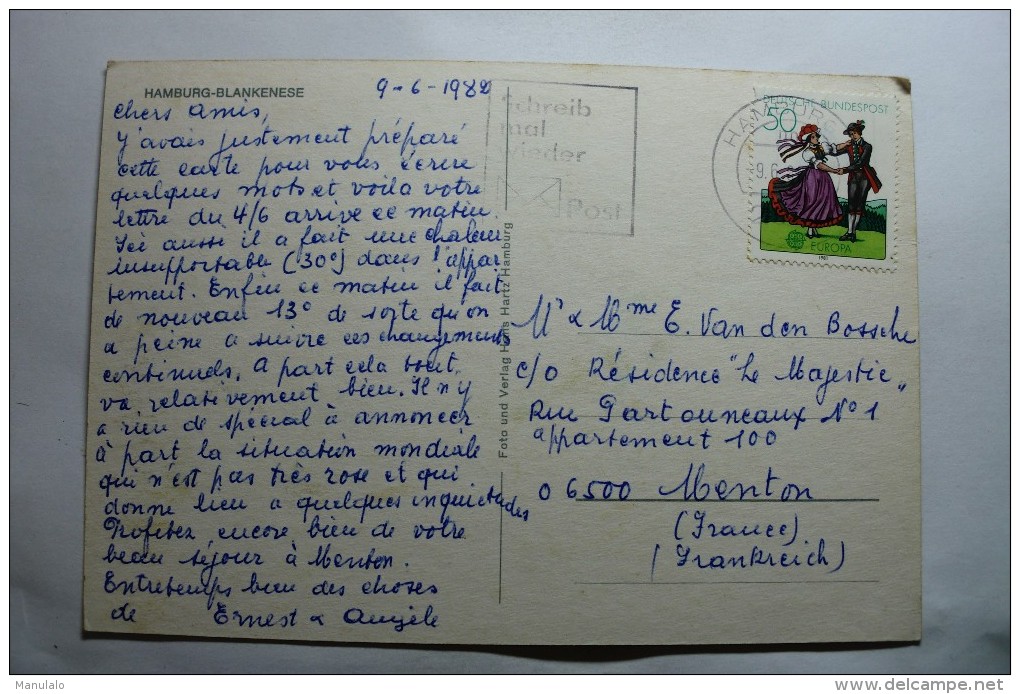 HAMBURG-BLANKENESE
9-6-1982
Chers Amis,
J'avais justement préparé
cette carte pour vous écrire
quelques mots et voila votre
lettre du 4/6 arrive ce matin.
Ici aussi il a fait une chaleur
insupportable (30°) dans l'appar-
tement. Enfin ce matin il fait
de nouveau 13° de sorte qu'on
a peine a suivre ces changements
continuels. A part cela tout
va relativement bien. Il n'y
a rien de spécial à annoncer
à part la situation mondiale
qui n'est pas très rose et qui
donne lieu a quelques inquietudes
Profitez encore bien de votre
beau séjour à Menton.
Entretemps bien des choses
de Ernest & Angèle
Schreib
mal
wieder
Post
HAMBURG
9.6
DEUTSCHE BUNDESPOST
50
EUROPA
1981
Foto und Verlag Hans Hartz Hamburg
Mr & Mme E. Van den Bossche
c/o Résidence "Le Majestic"
Rue Partouneaux N° 1
appartement 100
06500 Menton
(France)
(Frankreich)
Manulalo
delcampe.net